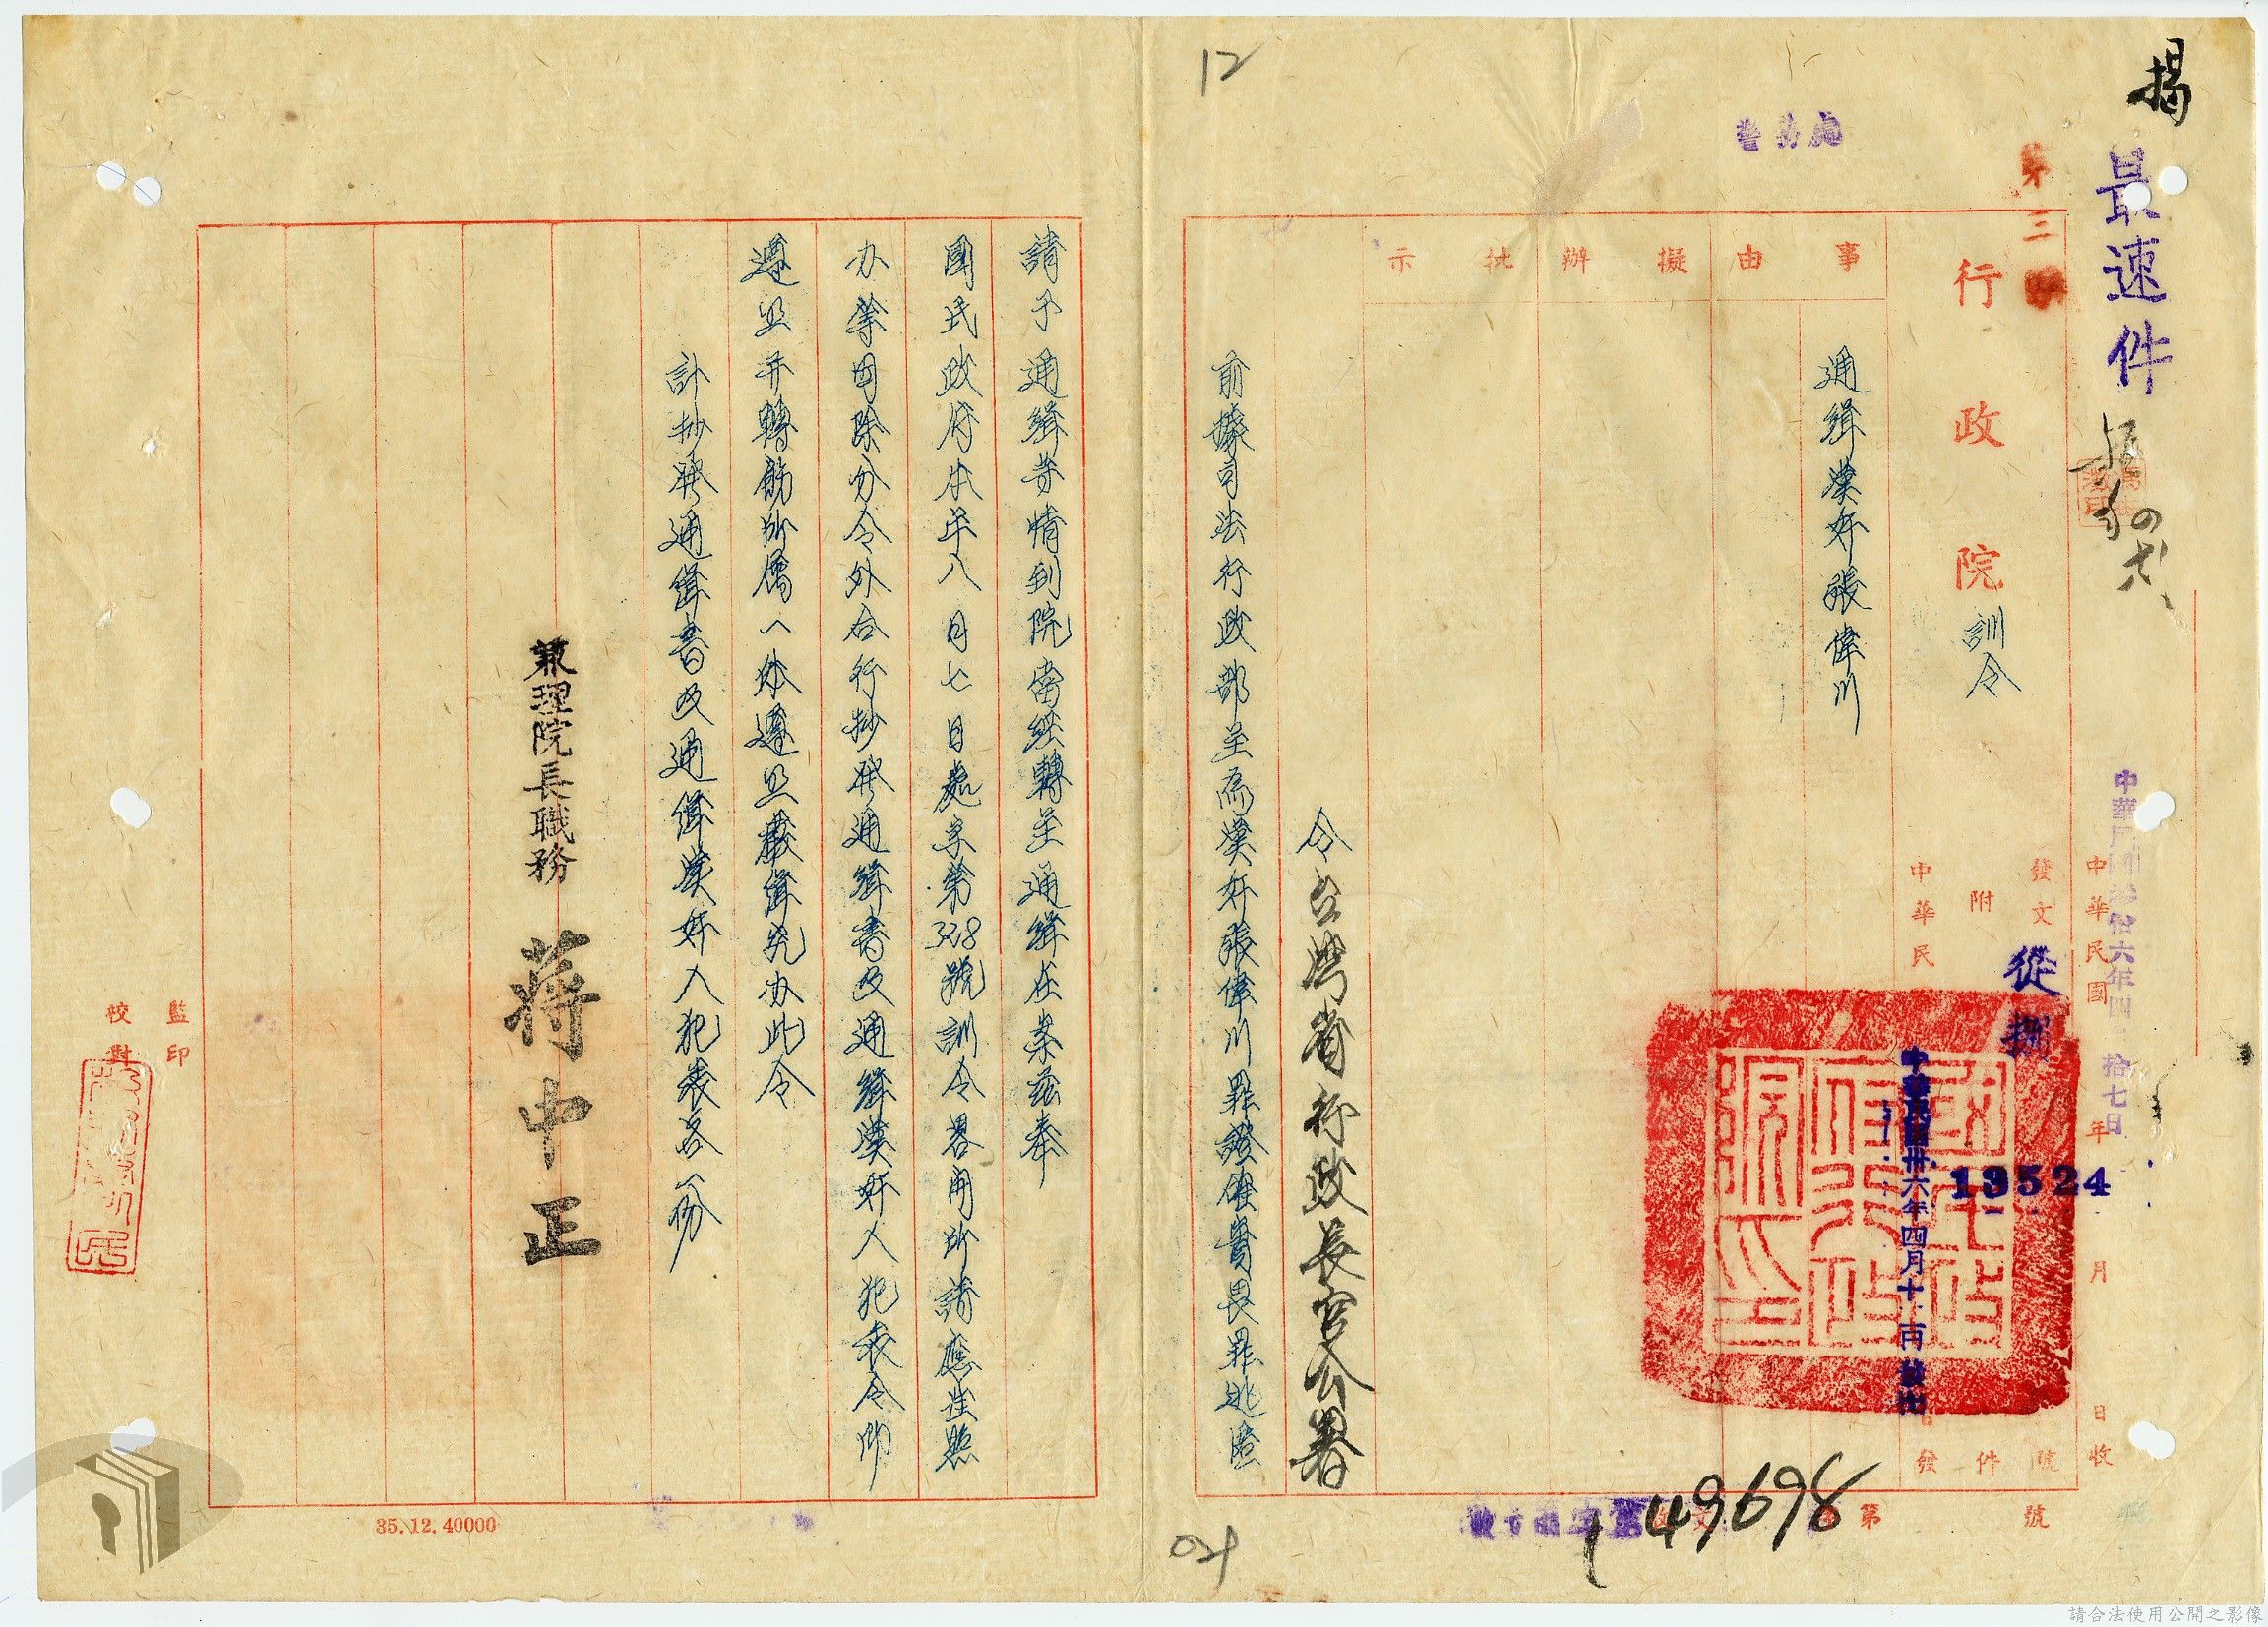 揭
最速件
中華民國 年 月 日收
拾六年四月 拾七日
第三
行政院訓令
發文 從捌 13524 號
附 件
中華民國卅六年四月十 日發出
事由
擬辦
批示
通緝漢奸張偉川
令台灣省行政長官公署
前據司法行政部呈為漢奸張偉川罪證確實畏罪逃匿
請予通緝等情到院當經轉呈通緝在案茲奉
國民政府本年八月七日處字第328號訓令畧開所請應准照
办等因除分令外合行抄發通緝書及通緝漢奸人犯表令仰
遵照并轉飭所屬一体遵照嚴緝究办此令
計抄發通緝書及通緝漢奸人犯表各一份
兼理院長職務 蔣中正
監印
校對
35.12.40000
第 號
149698
12
請合法使用公開之影像